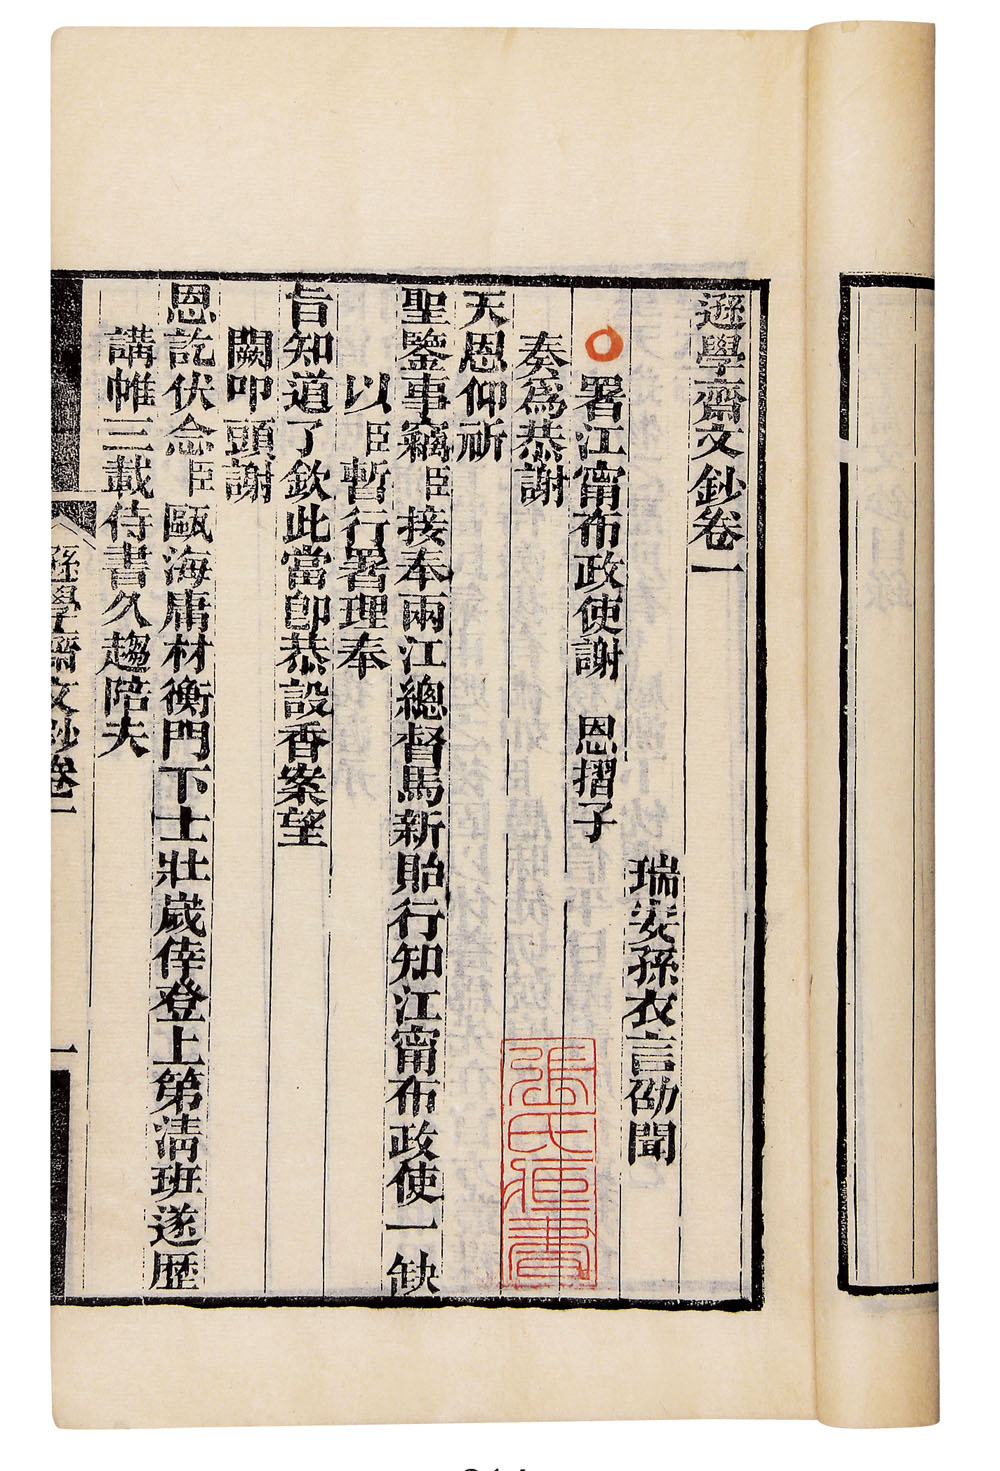 遜學齋文鈔卷一
瑞安孫衣言劭聞
署江甯布政使謝　恩摺子
奏爲恭謝
天恩仰祈
聖鑒事竊臣接奉兩江總督馬新貽行知江甯布政使一缺
以臣暫行署理奉
旨知道了欽此當卽恭設香案望
闕叩頭謝
恩訖伏念臣甌海庸材衡門下士壯歲倖登上第淸班遂歷
講帷三載侍書久趨陪夫
遜學齋文鈔卷一
一
張氏藏書